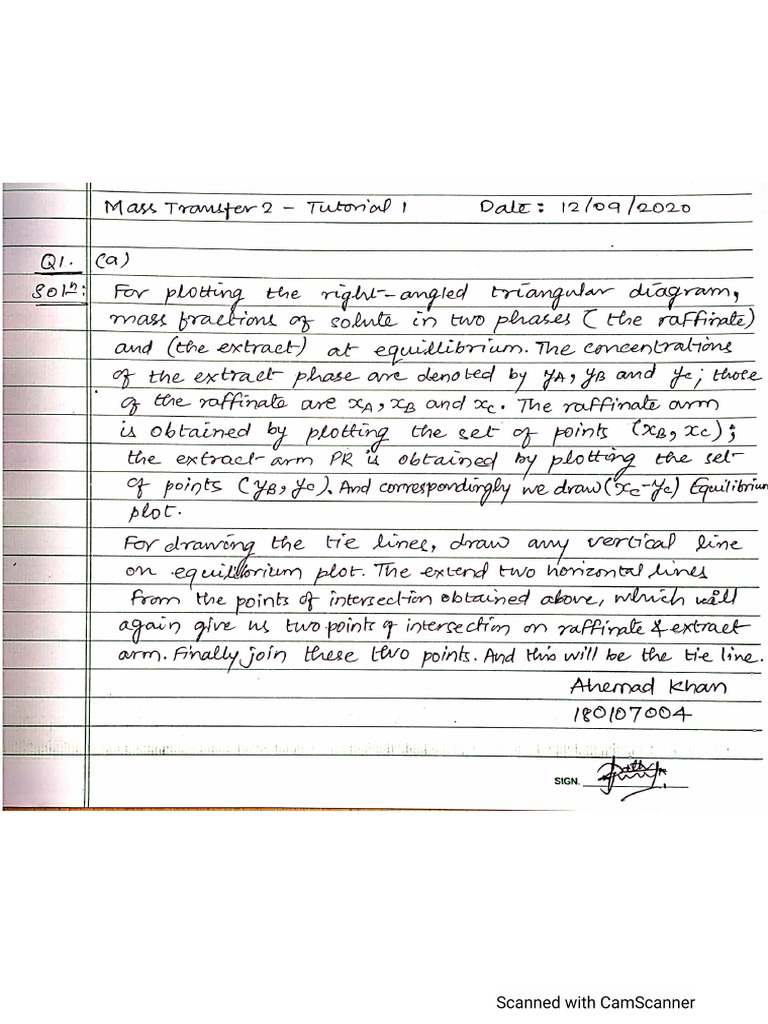 Mass Transfer 2 - Tutorial 1 Date: 12/09/2020
Q1. (a)
Solⁿ: For plotting the right-angled triangular diagram,
mass fractions of solute in two phases (the raffinate)
and (the extract) at equillibrium. The concentrations
of the extract phase are denoted by yA, yB and yC; those
of the raffinate are xA, xB and xC. The raffinate arm
is obtained by plotting the set of points (xB, xC);
the extract-arm PR is obtained by plotting the set
of points (yB, yC). And correspondingly we draw (xC-yC) Equilibrium
plot.
For drawing the tie lines, draw any vertical line
on equilibrium plot. The extend two horizontal lines
from the points of intersection obtained above, which will
again give us two points of intersection on raffinate & extract
arm. Finally join these two points. And this will be the tie line.
Ahemad Khan
180107004
SIGN.
Scanned with CamScanner